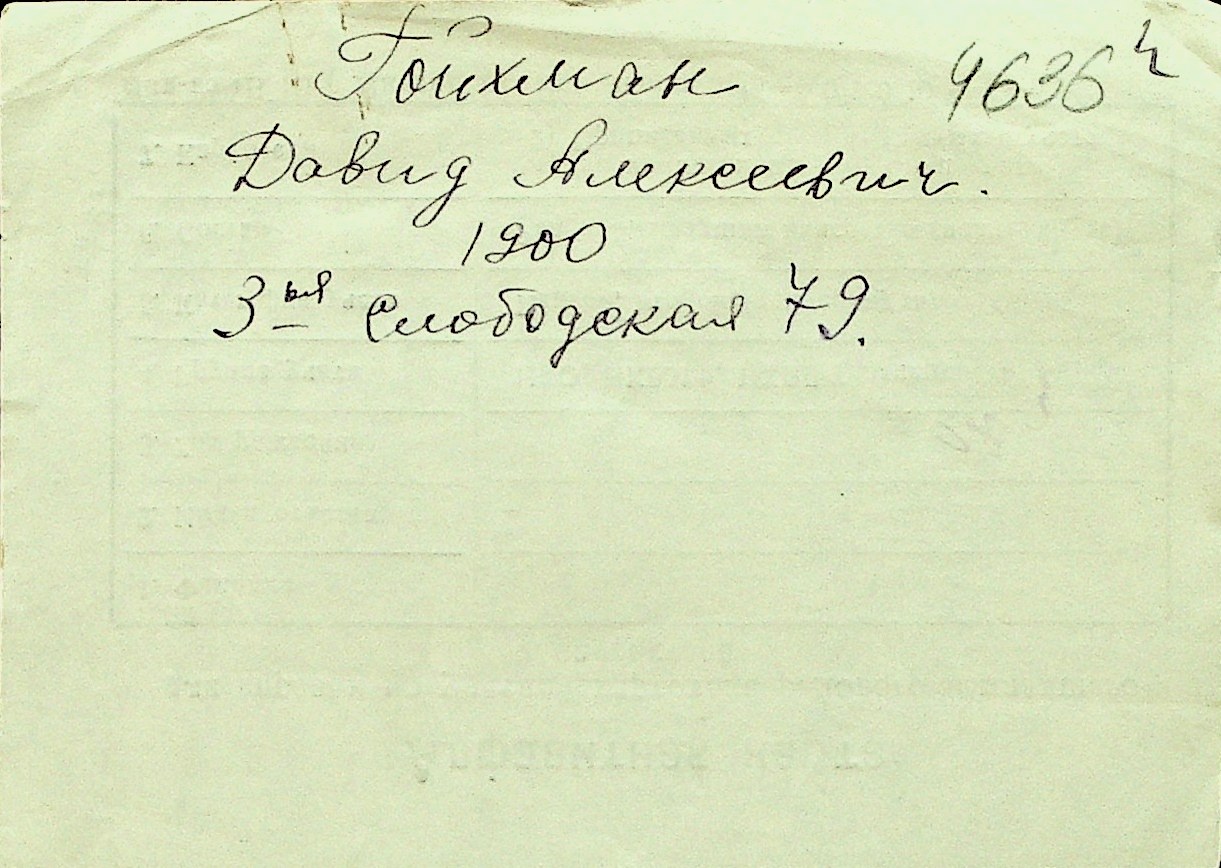 Гойхман
4636 ч
Давид Алексеевич.
1900
3ья Слободская 79.